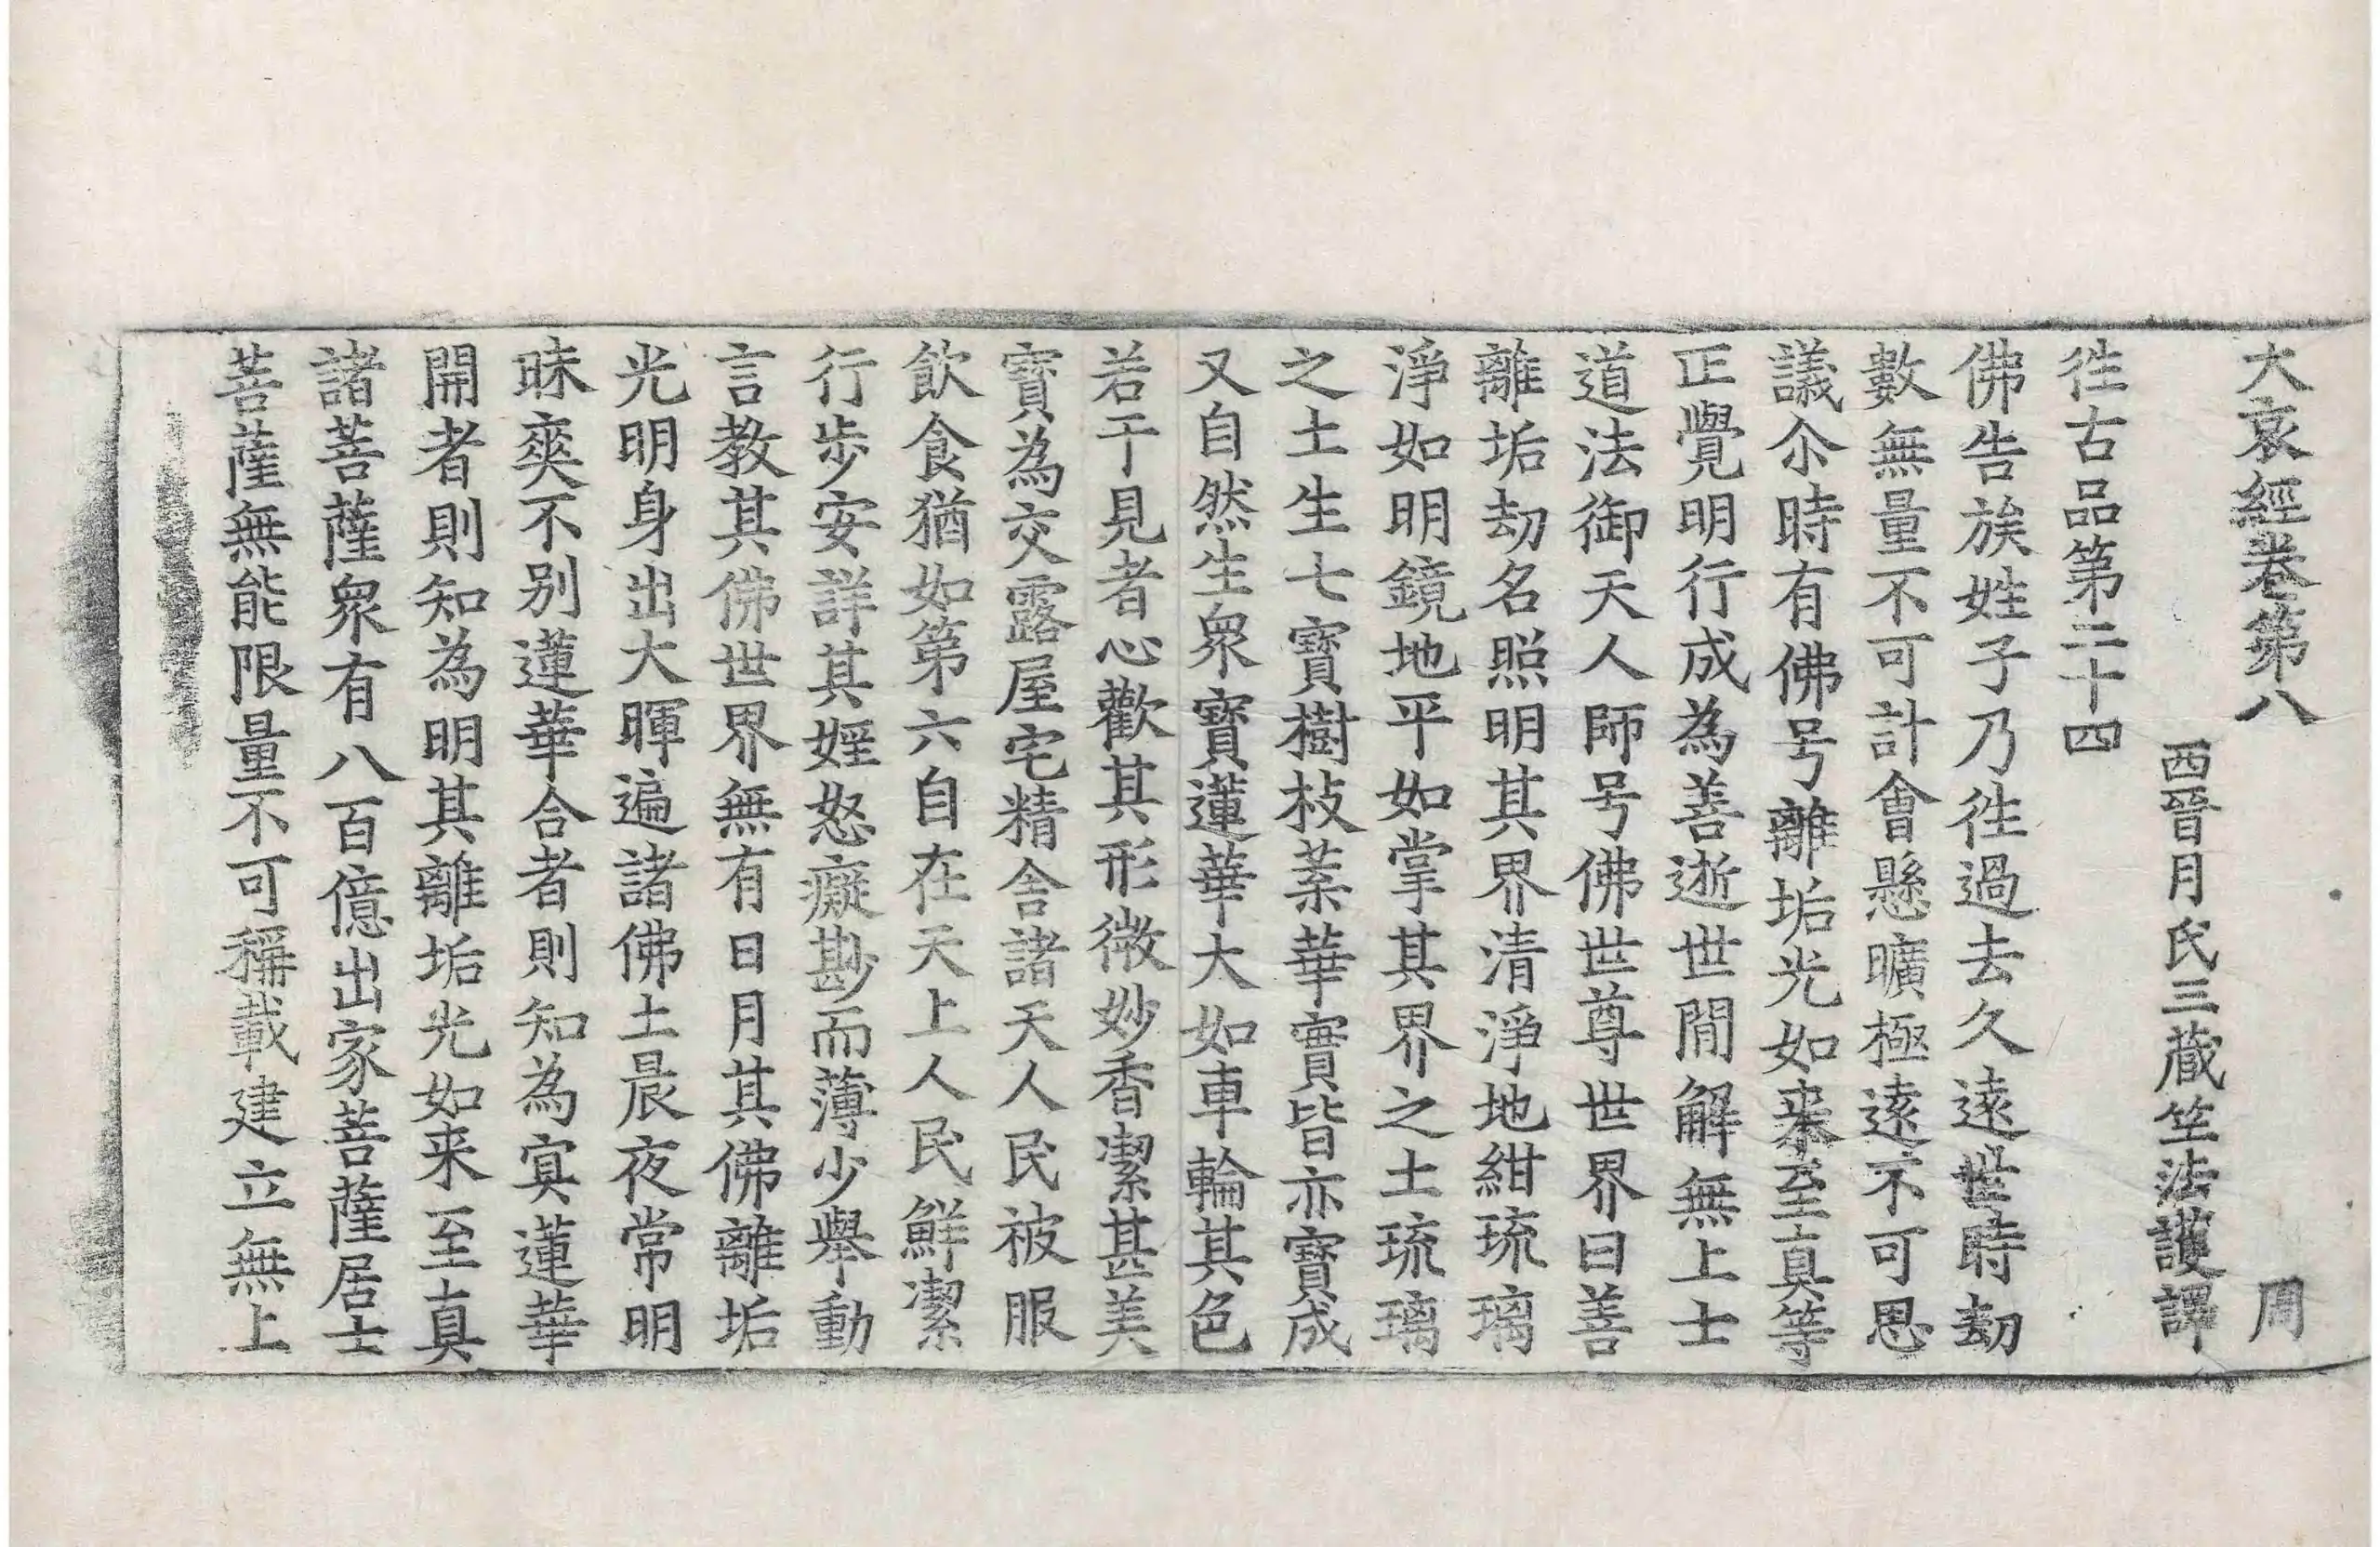 大哀經卷第八 周
西晉月氏三藏竺法護譯
往古品第二十四
佛告族姓子乃往過去久遠世時劫
數無量不可計會懸曠極遠不可思
議尒時有佛号離垢光如来至真等
正覺明行成為善逝世間解無上士
道法御天人師号佛世尊世界曰善
離垢劫名照明其界清淨地紺琉璃
淨如明鏡地平如掌其界之土琉璃
之土生七寶樹枝葉華實皆亦寶成
又自然生衆寶蓮華大如車輪其色
若干見者心歡其形微妙香潔甚美
寶為交露屋宅精舍諸天人民被服
飲食猶如第六自在天上人民鮮潔
行步安詳其婬怒癡尠而薄少舉動
言教其佛世界無有日月其佛離垢
光明身出大暉遍諸佛土晨夜常明
昧奭不別蓮華合者則知為冥蓮華
開者則知為明其離垢光如来至真
諸菩薩衆有八百億出家菩薩居士
菩薩無能限量不可稱載建立無上